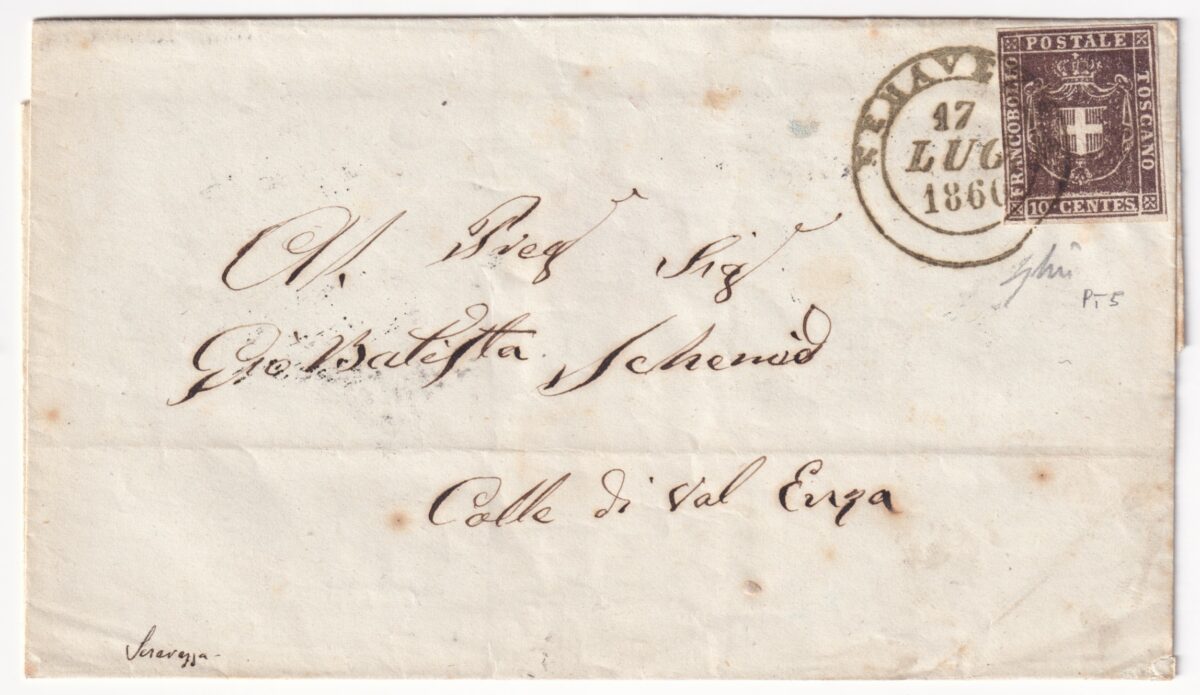 POSTALE
FRANCOBOLLO
TOSCANO
10 CENTES.
SERAVE
17
LUG
1860
Al. Preg Sig
Gio Batista Schemid
Colle di Val Enza
Pt 5
Seravezza